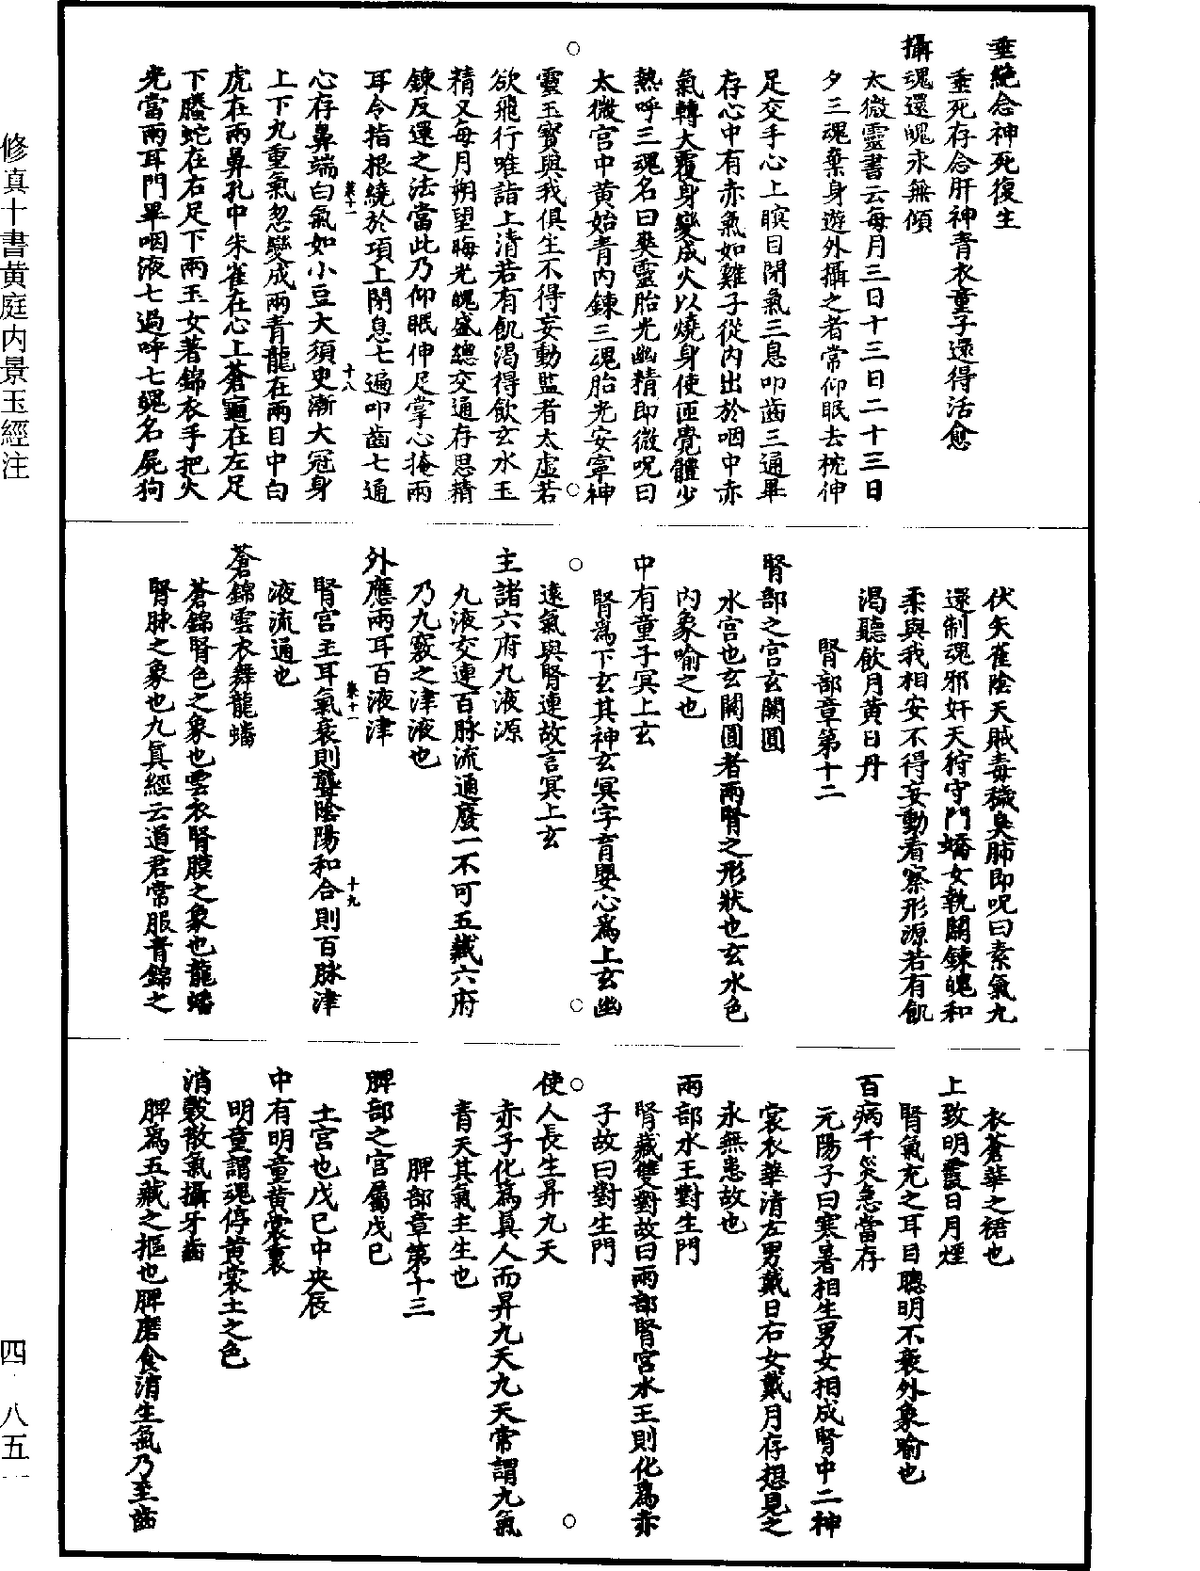 垂絶念神死復生
垂死存念肝神青衣童子還得活愈
攝魂還魄永無傾
太微靈書云每月三日十三日二十三日
夕三魂棄身遊外攝之者常仰眠去枕伸
足交手心上瞑目閉氣三息叩齒三通畢
存心中有赤氣如雞子從內出於咽中赤
氣轉大覆身變成火以燒身使匝覺體少
熱呼三魂名曰爽靈胎光幽精即微呪曰
太微宮中黃始青內鍊三魂胎光安寧神
靈玉寶與我俱生不得妄動監者太虛若
欲飛行唯詣上清若有飢渴得飲玄水玉
精又每月朔望晦光魄盛總交通存思精
鍊反還之法當此乃仰眠伸足掌心掩兩
耳令指根繞於項上閉息七遍叩齒七通
心存鼻端白氣如小豆大須史漸大冠身
上下九重氣忽變成兩青龍在兩目中白
虎在兩鼻孔中朱雀在心上蒼龜在左足
下騰蛇在右足下兩玉女著錦衣手把火
光當兩耳門畢咽液七過呼七魄名屍狗
伏矢雀陰天賊毒穢臭肺即呪曰素氣九
還制魂邪奸天狩守門嬌女執關鍊魄和
柔與我相安不得妄動看察形源若有飢
渴聽飲月黃日丹
腎部章第十二
腎部之宮玄闕圓
水宮也玄闕圓者兩腎之形狀也玄水色
內象喻之也
中有童子冥上玄
腎為下玄其神玄冥字育嬰心為上玄幽
遠氣與腎連故言冥上玄
主諸六府九液源
九液交連百脉流通廢一不可五藏六府
乃九竅之津液也
外應兩耳百液津
腎宮主耳氣衰則聾陰陽和合則百脉津
液流通也
蒼錦雲衣舞龍蟠
蒼錦腎色之象也雲衣腎膜之象也龍蟠
腎脉之象也九真經云道君常服青錦之
衣蒼華之裙也
上致明霞日月煙
腎氣充之耳目聰明不衰外象喻也
百病千災急當存
元陽子曰寒暑相生男女相成腎中二神
裳衣華清左男戴日右女戴月存想見之
永無患故也
兩部水王對生門
腎藏雙對故曰兩部腎宮水王則化為赤
子故曰對生門
使人長生昇九天
赤子化為真人而昇九天九天常謂九氣
青天其氣主生也
脾部章第十三
脾部之宮屬戊巳
土宮也戊巳中央辰
中有明童黃裳裏
明童謂魂停黃裳土之色
消穀散氣攝牙齒
脾為五藏之摳也脾磨食消生氣乃至齒
菜十一
十八
菜十一
十九
修真十書黄庭内景玉經注
四·八五一